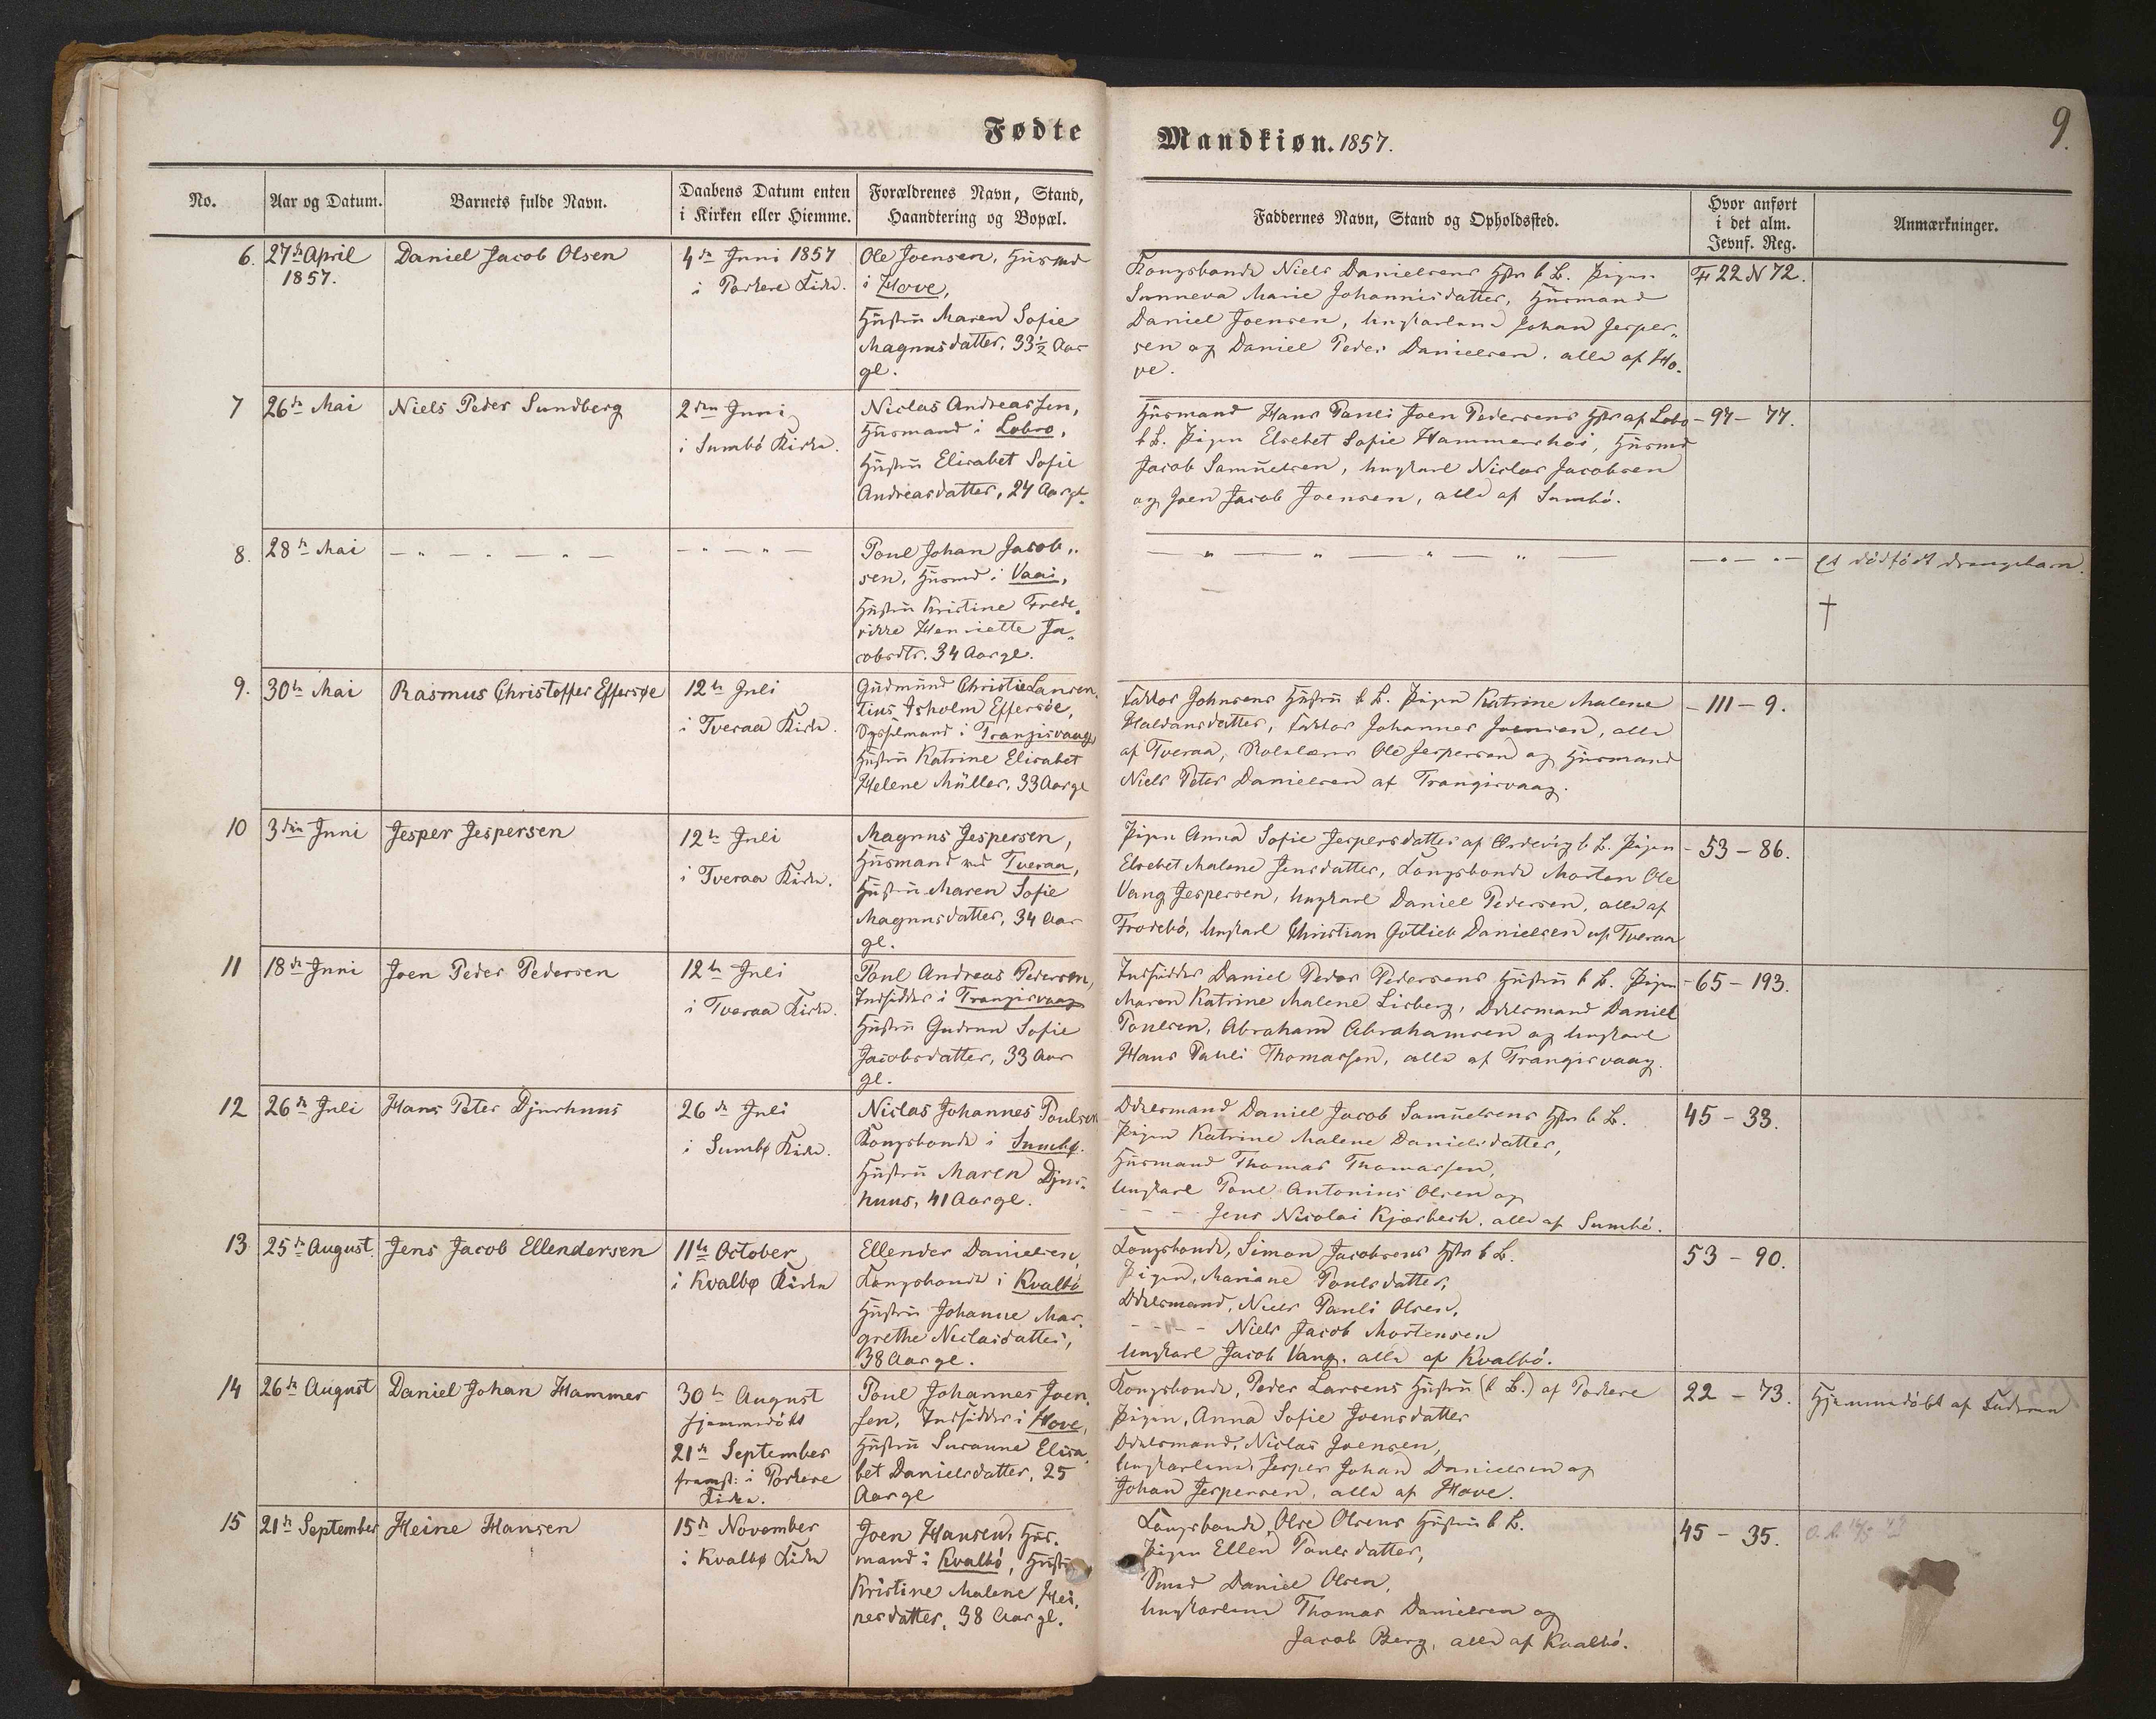 Fødte
Mandkiøn. 1857.
9.
No.
Aar og Datum.
Barnets fulde Navn.
Daabens Datum enten
i Kirken eller Hiemme.
Forældrenes Navn, Stand,
Haandtering og Bopæl.
Faddernes Navn, Stand og Opholdssted.
Hvor anført
i det alm.
Jevnf. Reg.
Anmærkninger.
6.
27de April
1857.
Daniel Jacob Olsen
4de Juni 1857
i Porkere Kirke.
Ole Joensen, Husmd
i Hove,
Hustru Maren Sofie
Magnusdatter, 33½ Aar
gl.
Kongsbonde Niels Danielsens Hstr b. B. Pigen
Sunneva Marie Johannisdatter, Husmand
Daniel Joensen, Ungkarlene Johan Jesper„
sen og Daniel Peder Danielsen, alle af Ho-
ve.
F 22 N 72.
7
26de Mai
Niels Peder Sundberg
2den Juni
i Sumbö Kirke.
Niclas Andreassen,
Husmand i Lobro,
Hustru Elisabet Sofie
Andreasdatter, 24 Aar gl.
Husmand Hans Pauli Joen Pedersens Hstr af Lobro
b. B. Pigen Elsebet Sofie Hammershói, Husmd
Jacob Samuelsen, Ungkarl Niclas Jacobsen
og Joen Jacob Joensen, alle af Sumbó.
- 97 - 77.
8.
28de Mai
— „ — „ — „ —
— „ — „ —
Poul Johan Jacob„
sen, Husmd i Vaai,
Hustru Kristine Frede„
rikke Henriette Ja„
cobsdtr. 34 Aar gl.
— „ — „ — „ — „ —
— „ — „ —
Et dódfódt drengebarn.
†
9.
30te Mai
Rasmus Christoffer Effersøe
12te Juli
i Tveraa Kirke.
Gudmund Christie Lauren„
tius Isholm Effersöe,
Sysselmand i Trangisvaag
Hustru Katrine Elisabet
Helene Müller, 33 Aar gl
Faktor Johnsens Hustru b. B. Pigen Katrine Malene
Haldansdatter, Faktor Johannes Joensen, alle
af Tveraa, Ole Jespersen og Husmand
Niels Peter Danielsen af Trangisvaag.
- 111 - 9.
10
3die Juni
Jesper Jespersen
12te Juli
i Tveraa Kirke.
Magnus Jespersen,
Husmand ved Tveraa,
Hustru Maren Sofie
Magnusdatter, 34 Aar
gl.
Pigen Anna Sofie Jespersdatter af Ordevig b. B. Pigen
Elsebet Malene Jensdatter, Kongsbonde Morten Ole
Vang Jespersen, Ungkarl Daniel Pedersen, alle af
Frodebó, Ungkarl Christian Gotlieb Danielsen af Tveraa
- 53 - 86.
11
18de Juni
Joen Peder Pedersen
12te Juli
i Tveraa Kirke.
Poul Andreas Pedersen,
Indsidder i Trangisvaag
Hustru Gudrun Sofie
Jacobsdatter, 33 Aar
gl.
Indsidder Daniel Peder Pedersens Hustru b. B. Pigen
Maren Katrine Malene Lisberg, Odelsmand Daniel
Poulsen, Abraham Abrahamsen og Ungkarl
Hans Pauli Thomassen, alle af Trangisvaag.
- 65 - 193.
12
26de Juli
Hans Peter Djurhuus
26de Juli
i Sumbø Kirke.
Niclas Johannes Poulsen
Kongsbonde i Sumbø.
Hustru Maren Djur„
huus, 41 Aar gl.
Odelsmand Daniel Jacob Samuelsens Hstr b. B.
Pigen Katrine Malene Danielsdatter,
Husmand Thomas Thomassen,
Ungkarl Poul Antonius Olsen og
- - - Jens Nicolai Kjærbech, alle af Sumbó.
45 - 33.
13
25de August.
Jens Jacob Ellendersen
11te October
i Kvalbø Kirke
Ellender Danielsen,
Kongsbonde i Kvalbö
Hustru Johanne Mar„
grethe Niclasdatter,
38 Aar gl.
Kongsbonde, Simon Jacobsens Hstr b. B.
Pigen, Mariane Poulsdatter,
Odelsmand, Niels Pauli Olsen,
- - - - Niels Jacob Mortensen
Ungkarl Jacob Vang, alle af Kvalbó.
53 - 90.
14
26de August
Daniel Johan Hammer
30te August
hjemmedöbt
21de September
fremst: i Porkere
Kirke.
Poul Johannes Joen„
sen, Indsidder i Hove,
Hustru Susanne Elisa„
bet Danielsdatter, 25
Aar gl
Kongsbonde, Peder Larsens Hustru (b. B.) af Porkere
Pigen, Anna Sofie Joensdatter
Odelsmand, Niclas Joensen,
Ungkarlene, Jesper Johan Danielsen og
Johan Jespersen, alle af Hove.
22 - 73.
Hjemmedöbt af
15
21de September
Heine Hansen
15de November
i Kvalbø Kirke
Joen Hansen, Hus„
mand i Kvalbó, Hustru
Kristine Malene Hei„
nesdatter, 38 Aar gl.
Kongsbonde, Olse Olsens Hustru b. B.
Pigen Ellen Poulsdatter,
Smed Daniel Olsen,
Ungkarlene Thomas Danielsen og
Jacob Berg, alle af Kvalbó.
45 - 35.